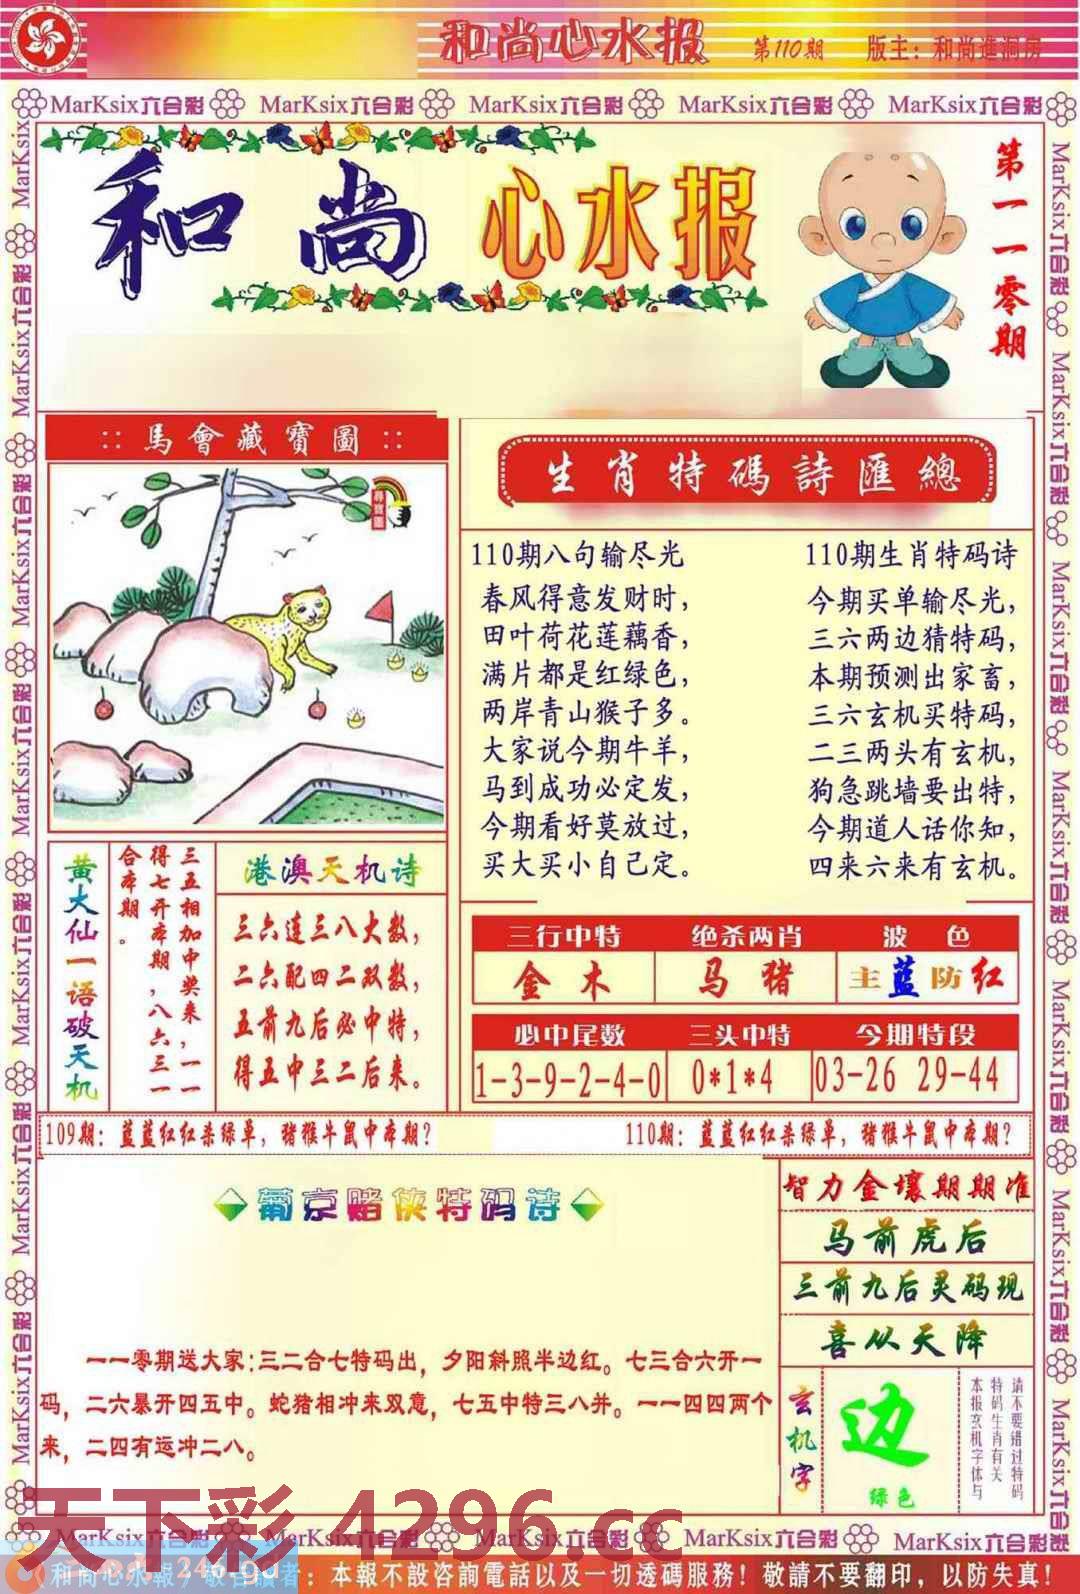 和尚心水报 第110期 版主：和尚進洞房
MarKsix六合彩 MarKsix六合彩 MarKsix六合彩 MarKsix六合彩 MarKsix六合彩
和尚 心水报
第一一零期
::馬會藏寶圖::
尋寶圖
生肖特碼詩匯總
110期八句输尽光
春风得意发财时，
田叶荷花莲藕香，
满片都是红绿色，
两岸青山猴子多。
大家说今期牛羊，
马到成功必定发，
今期看好莫放过，
买大买小自己定。
110期生肖特码诗
今期买单输尽光，
三六两边猜特码，
本期预测出家畜，
三六玄机买特码，
二三两头有玄机，
狗急跳墙要出特，
今期道人话你知，
四来六来有玄机。
黄大仙一语破天机
三五相加中奖来，一一
得七开本期，八六三一
合本期。
港澳天机诗
三六连三八大数，
二六配四二双数，
五前九后必中特，
得五中三二后来。
三行中特 绝杀两肖 波色
金木 马猪 主蓝防红
必中尾数 三头中特 今期特段
1-3-9-2-4-0 0*1*4 03-26 29-44
109期：蓝蓝红红杀绿单，猪猴牛鼠中本期？ 110期：蓝蓝红红杀绿单，猪猴牛鼠中本期？
葡京赌侠特码诗
一一零期送大家：三二合七特码出，夕阳斜照半边红。七三合六开一
码，二六暴开四五中。蛇猪相冲来双意，七五中特三八并。一一四四两个
来，二四有运冲二八。
智力金壤期期准
马前虎后
三前九后灵码现
喜从天降
玄机字
边
绿色
请不要错过特码
特码生肖有关
本报玄机字体与
天下彩 4296.cc
MarKsix六合彩 MarKsix六合彩 MarKsix六合彩 MarKsix六合彩 MarKsix六合彩
和尚心水報，敬告讀者：本報不設咨詢電話以及一切透碼服務！敬請不要翻印，以防失真！
246.gd